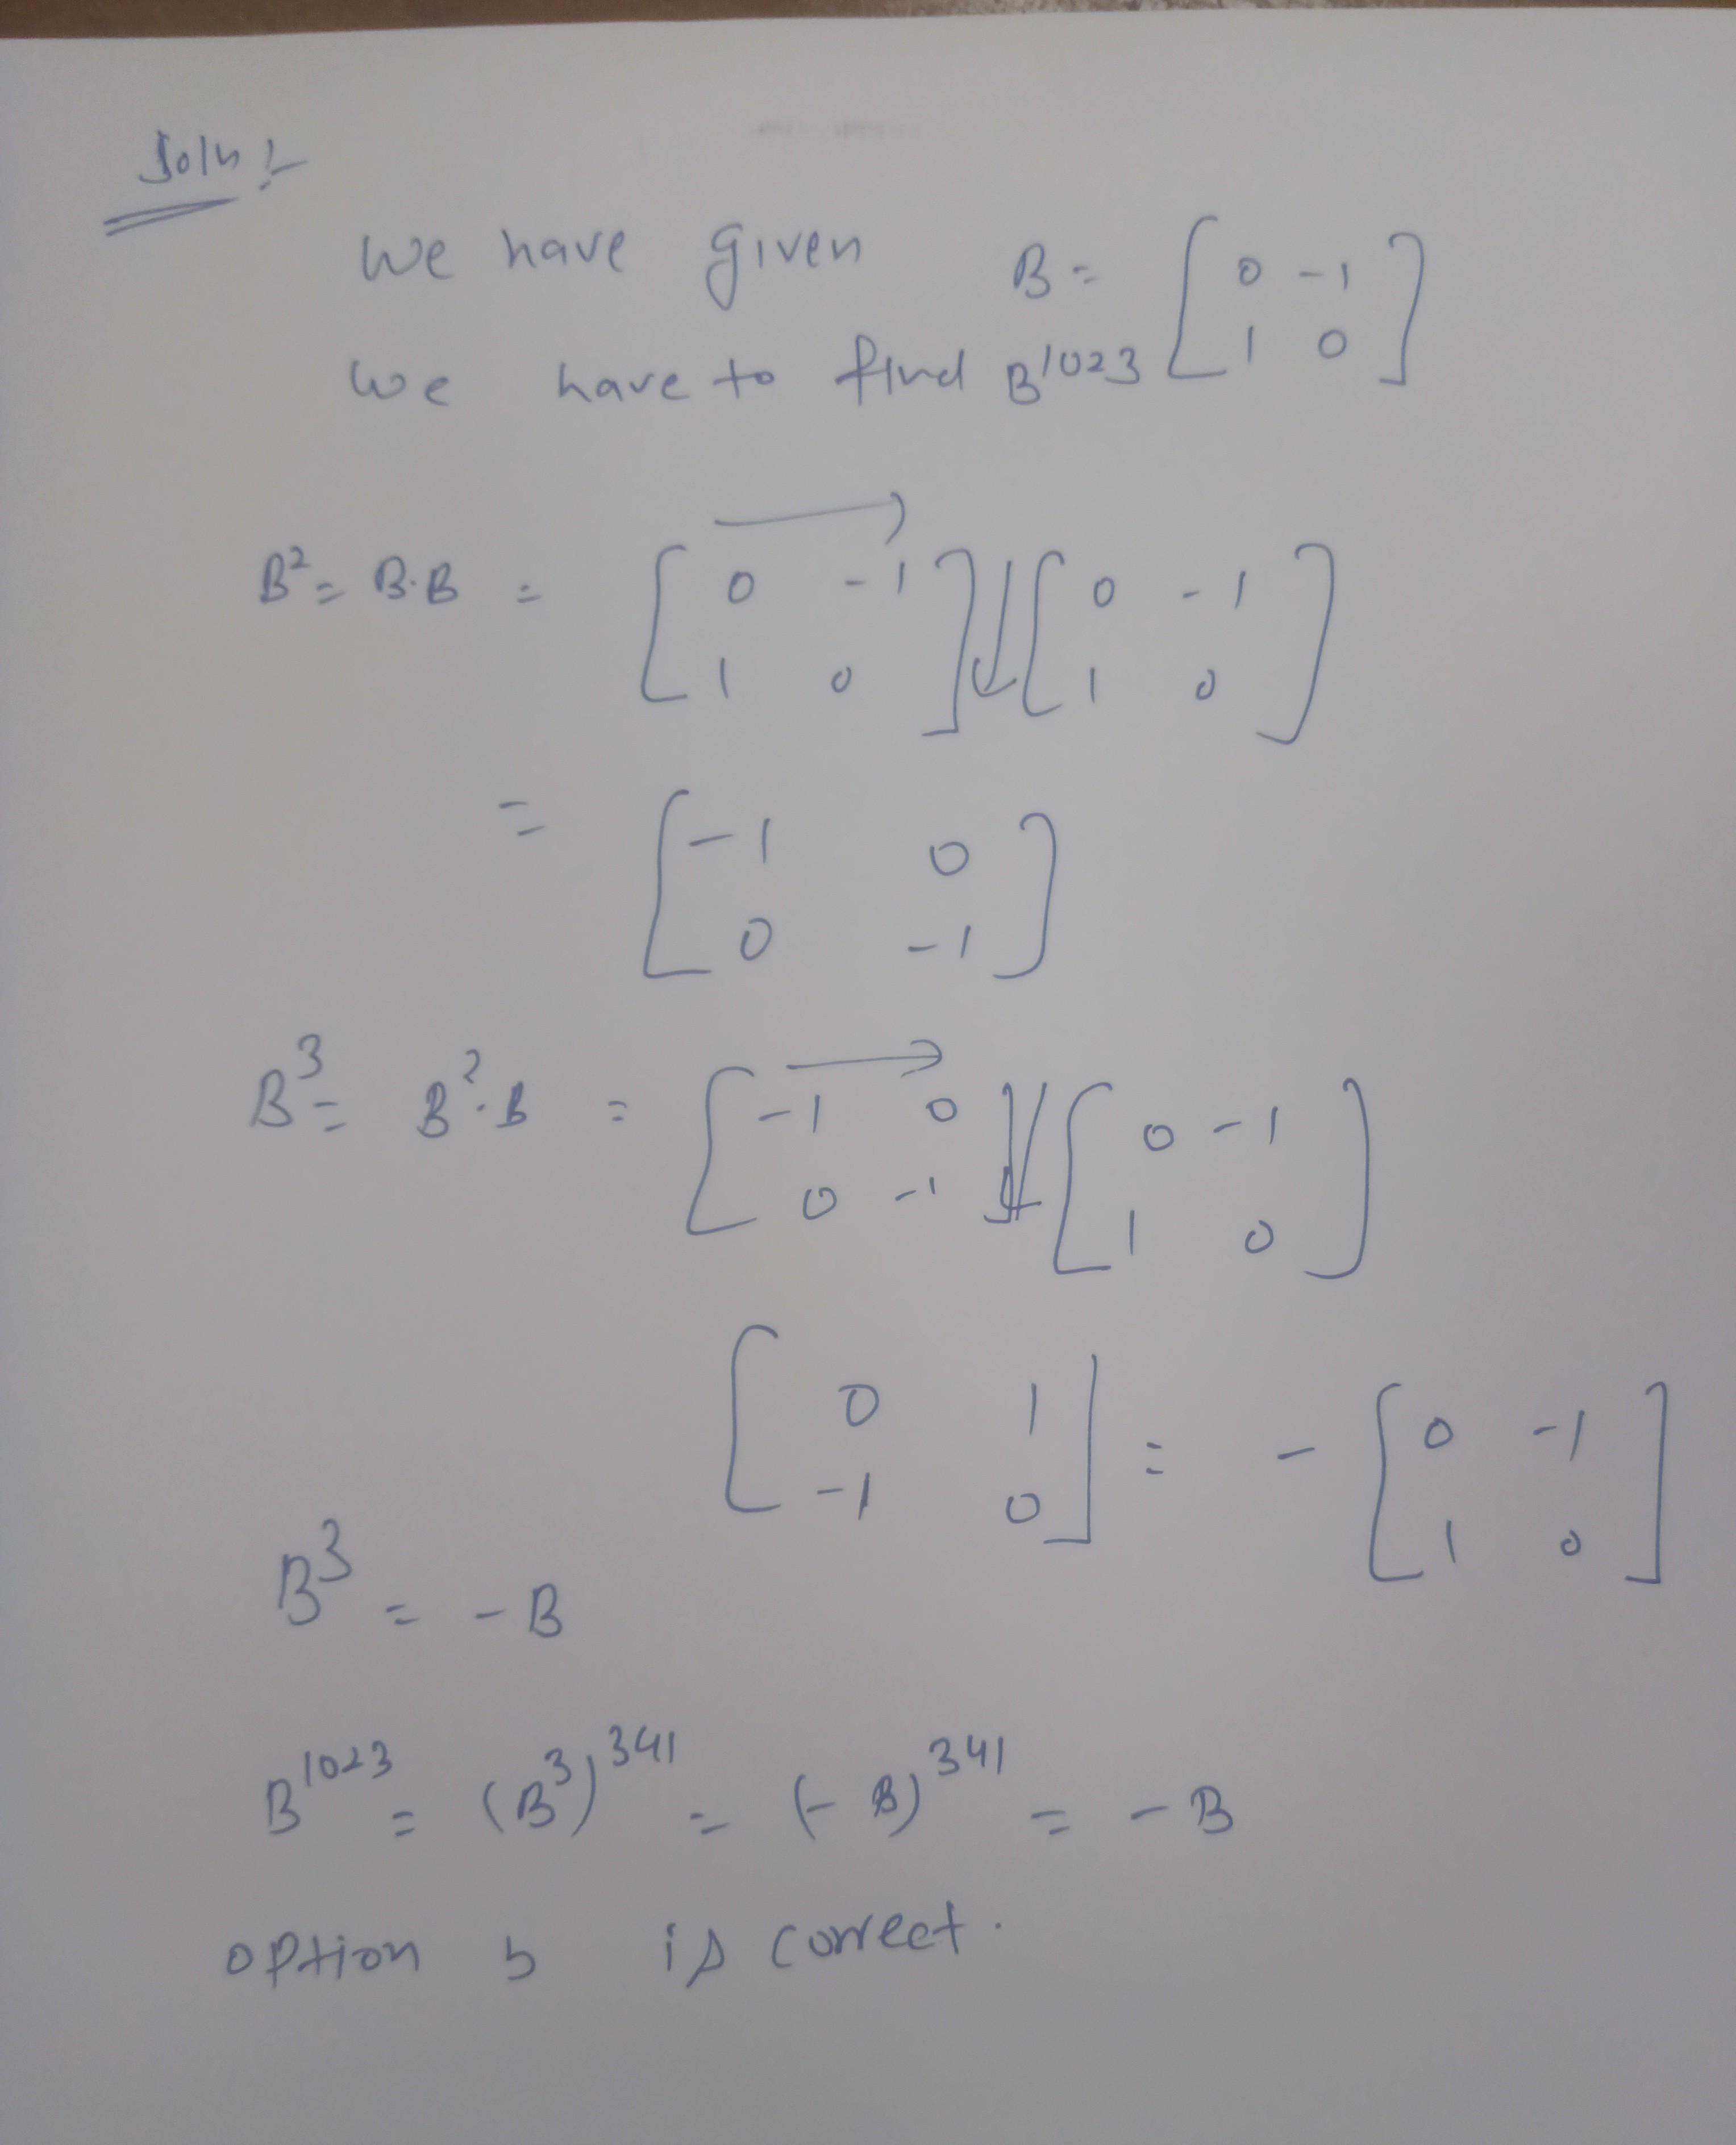 Soln:-
We have given B = [0 -1
1 0]
We have to find B^1023
B^2 = B.B = [0 -1
1 0] [0 -1
1 0]
= [-1 0
0 -1]
B^3 = B^2.B = [-1 0
0 -1] [0 -1
1 0]
[0 1
-1 0] = -[0 -1
1 0]
B^3 = -B
B^1023 = (B^3)^341 = (-B)^341 = -B
option b is correct.